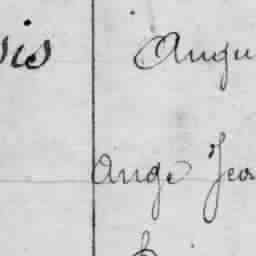 sis Augu
Ange Jea